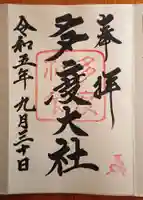 奉拝
多度大社
令和五年九月三十日